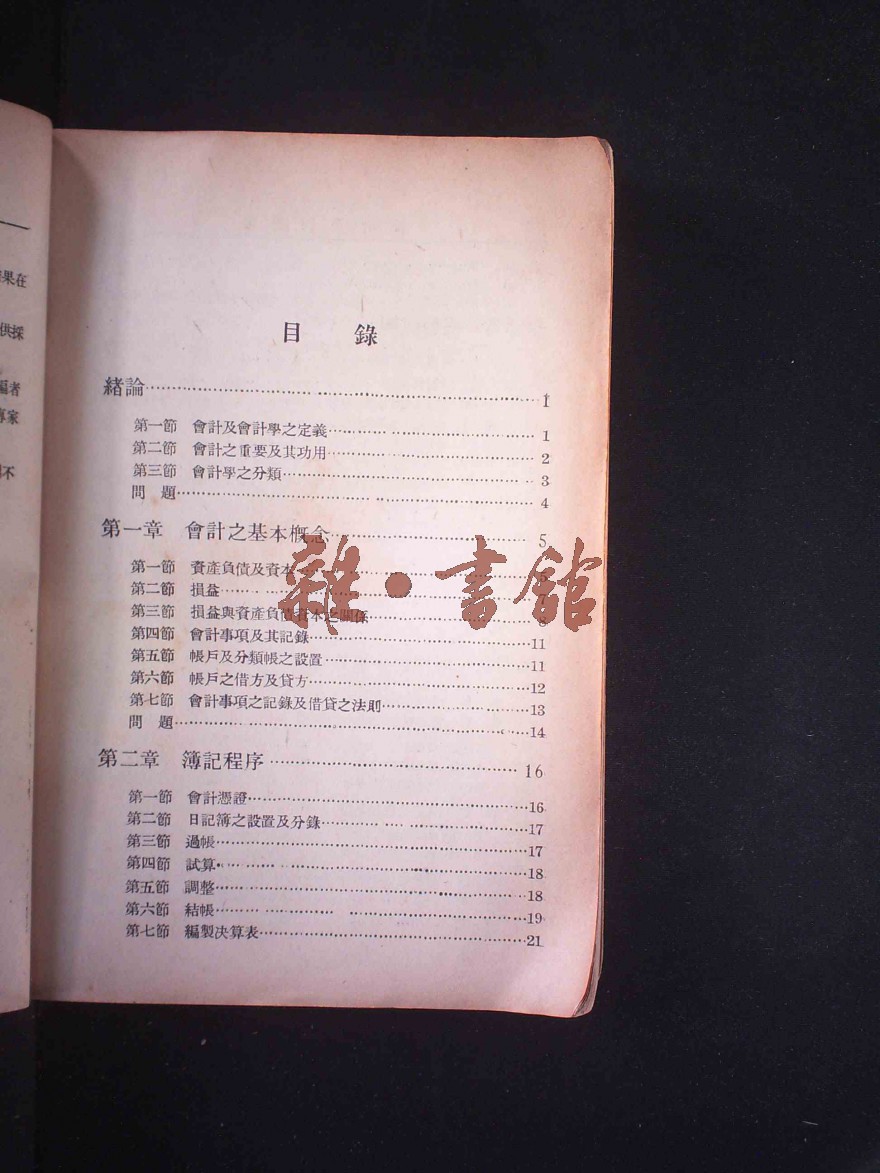 果在
供採
者
專家
不
目 錄
緒論 1
第一節 會計及會計學之定義 1
第二節 會計之重要及其功用 2
第三節 會計學之分類 3
問 題 4
第一章 會計之基本概念 5
第一節 資產負債及資本
第二節 損益
第三節 損益與資產負債資本之關係 8
第四節 會計事項及其記錄 11
第五節 帳戶及分類帳之設置 11
第六節 帳戶之借方及貸方 12
第七節 會計事項之記錄及借貸之法則 13
問 題 14
第二章 簿記程序 16
第一節 會計憑證 16
第二節 日記簿之設置及分錄 17
第三節 過帳 17
第四節 試算 18
第五節 調整 18
第六節 結帳 19
第七節 編製決算表 21
雜·書館